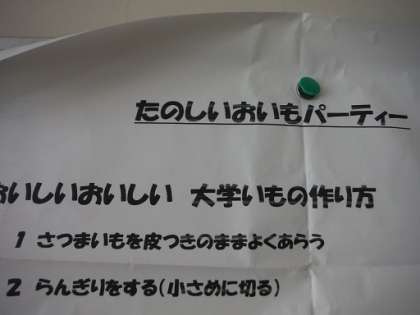 たのしいおいもパーティー
おいしいおいしい 大学いもの作り方
1 さつまいもを皮つきのままよくあらう
2 らんぎりをする(小さめに切る)